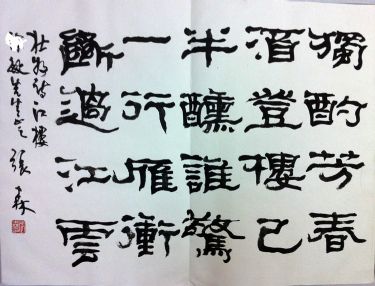 獨酌芳春
酒登樓已
半醺誰驚
一行雁衝
斷過江雲
杜牧詩江樓
敏先生正 張森